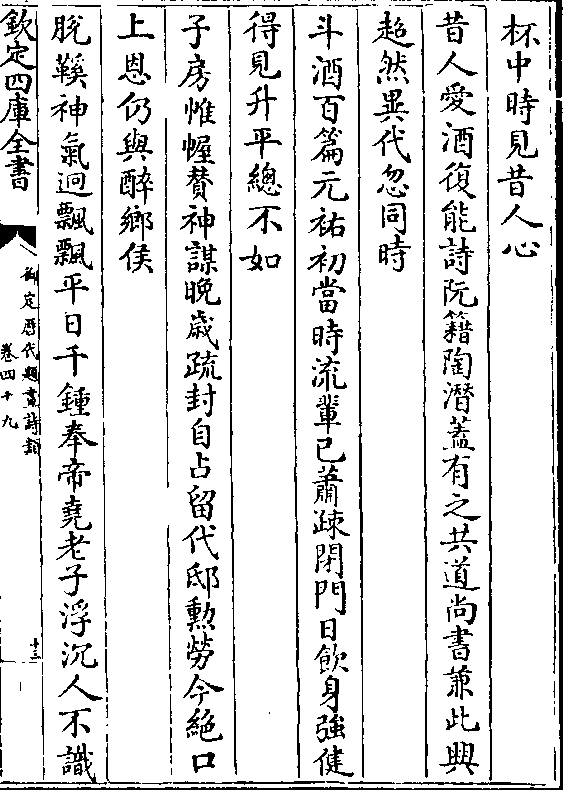 杯中時見昔人心
昔人愛酒復能詩阮籍陶潛蓋有之共道尚書兼此興
超然異代忽同時
斗酒百篇元祐初當時流輩已蕭踈閉門日飲身強健
得見升平緫不如
子房帷幄賛神謀晚歳疏封自占留代邸勲勞今絶口
上恩仍與醉鄉侯
脫鞾神氣逈飄飄平日千鍾奉帝堯老子浮沉人不識
欽定四庫全書
御定歴代題畫詩類
卷四十九
十三